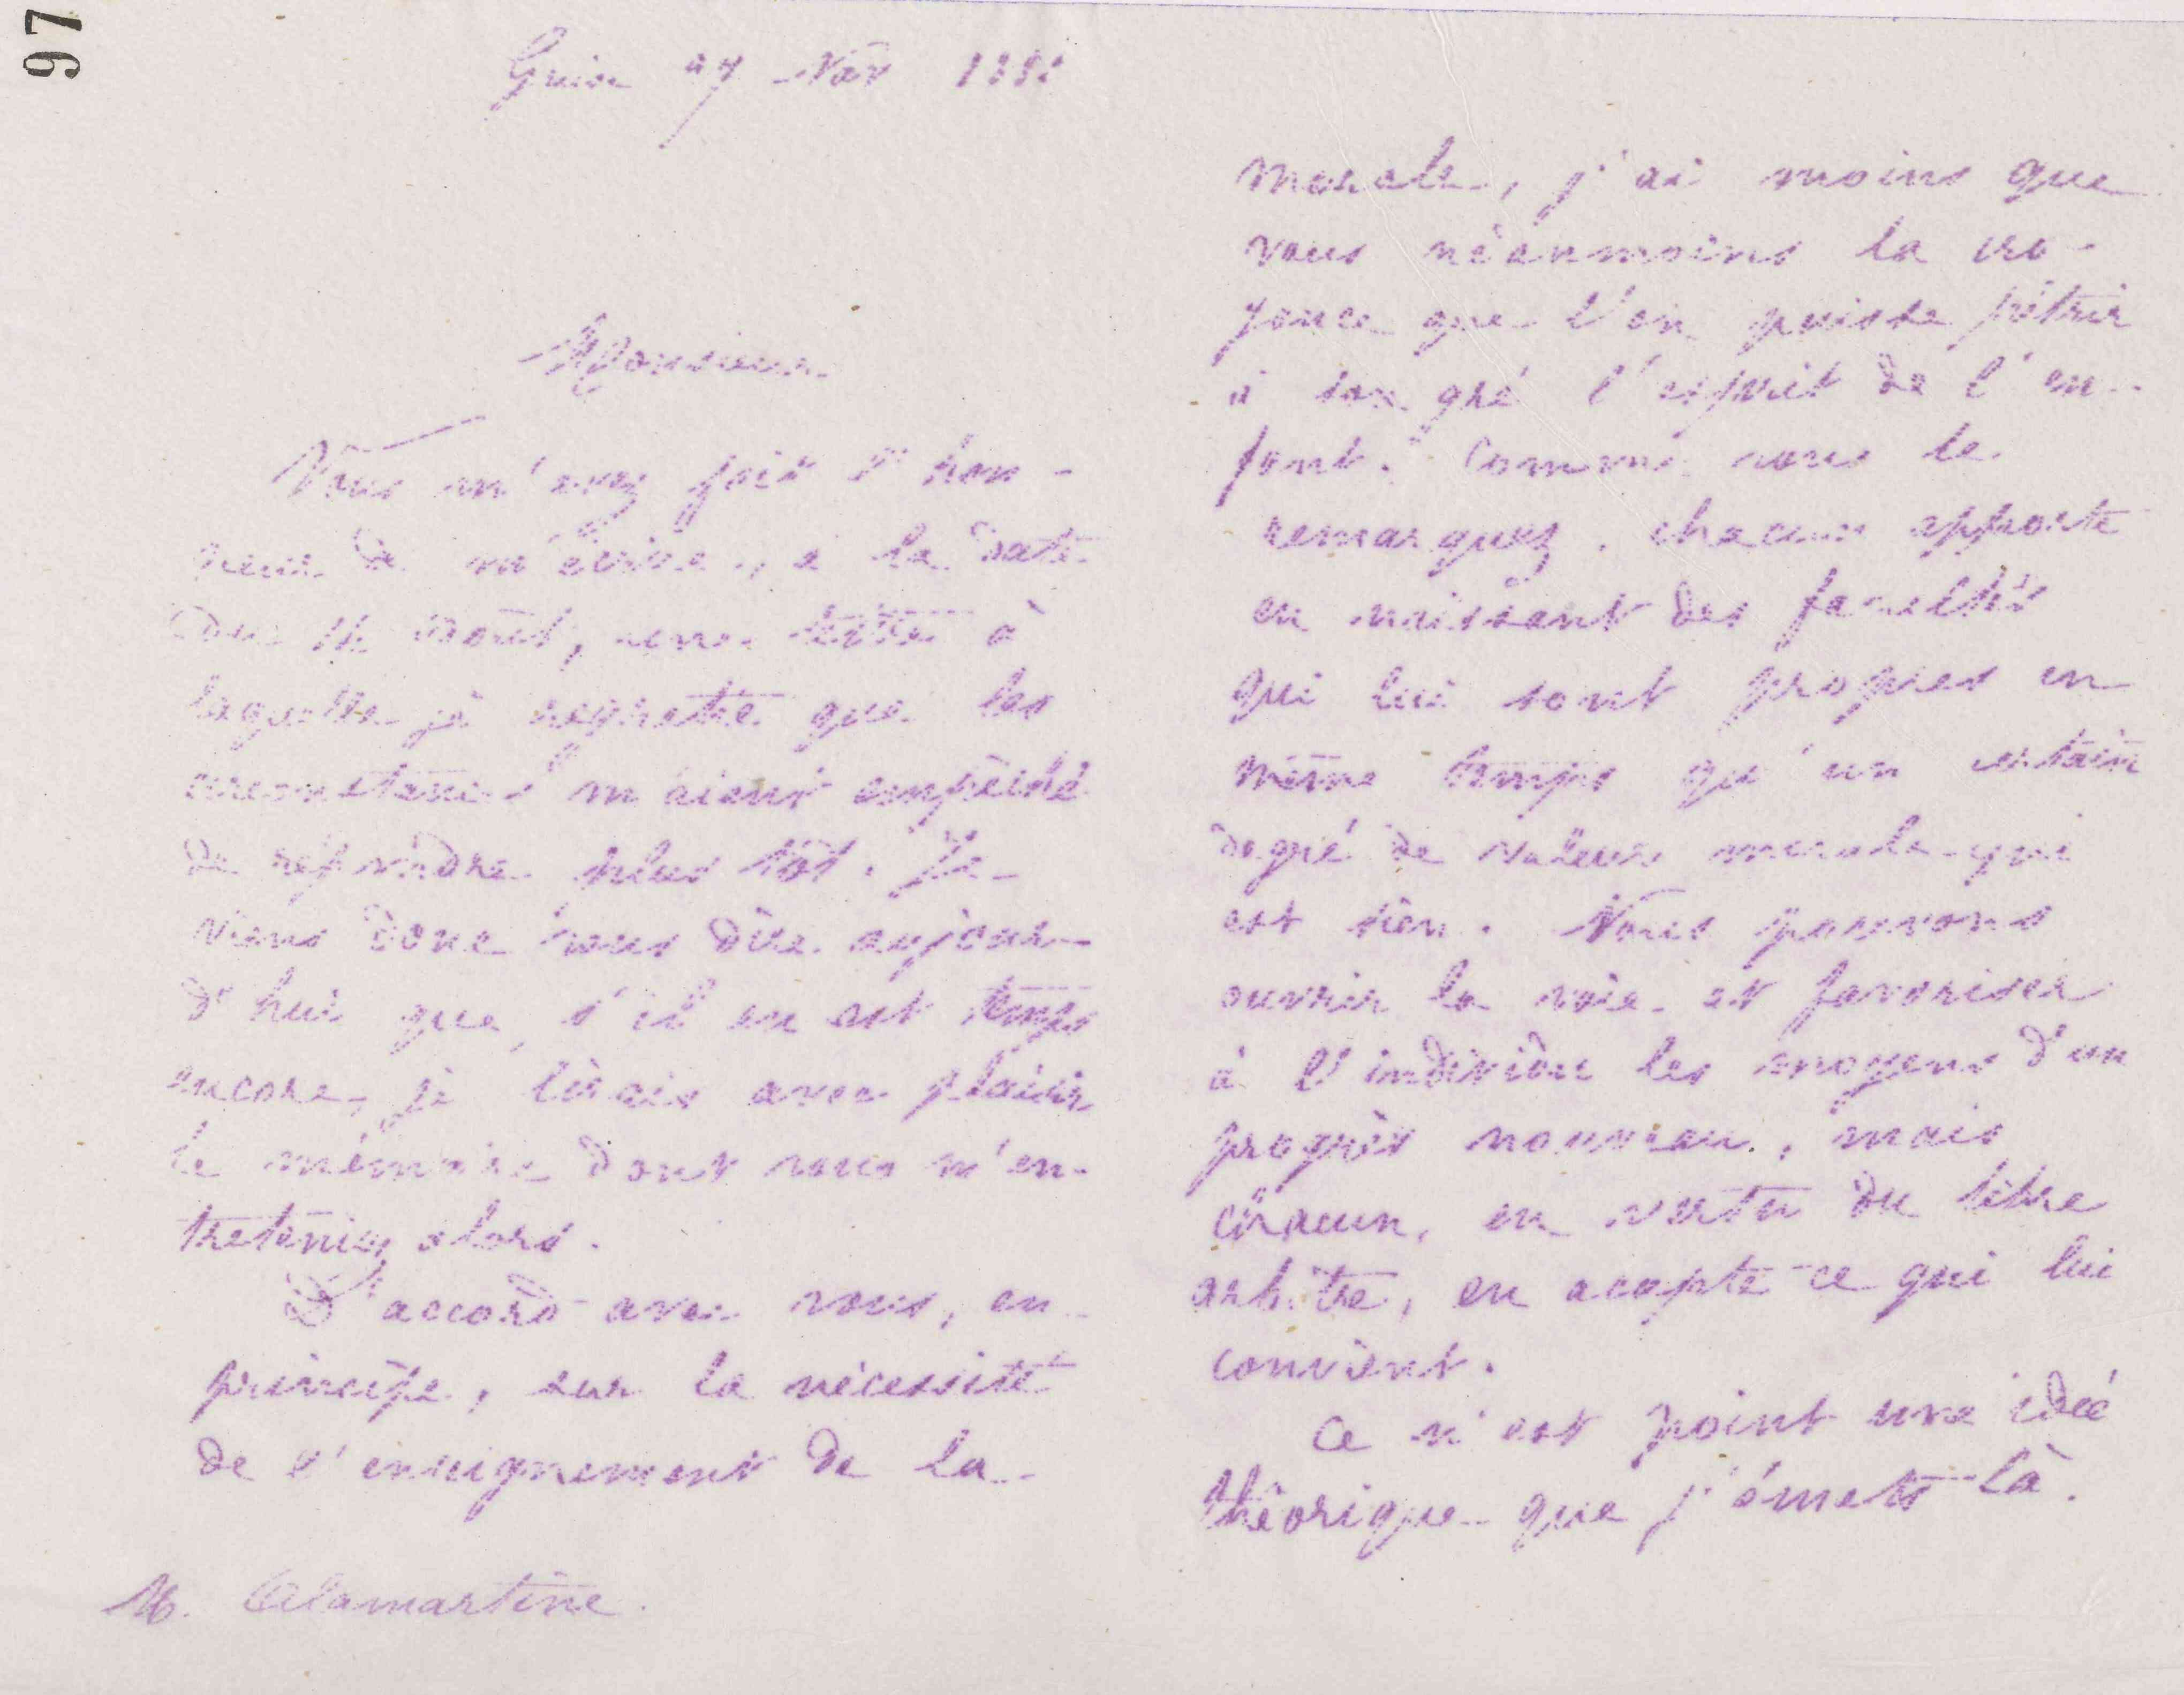 97
Guise 27 Nov 188
Monsieur
Vous m'avez fait l'hon-
neur de m'écrire, à la date
du août, une lettre à
laquelle je regrette que les
circonstances m'aient empêché
de répondre plus tôt. Je
viens donc vous dire aujour-
d'hui que, s'il en est temps
encore, je lirais avec plaisir
le mémoire dont vous m'en-
treteniez alors.
D'accord avec vous, en
principe, sur la nécessité
de l'enseignement de la
M. Alamartine.
morale, j'ai moins que
vous néanmoins la cro-
yance que l'on puisse pétrir
à son gré l'esprit de l'en-
fant. Comme vous le
remarquez, chacun apporte
en naissant des facultés
qui lui sont propres en
même temps qu'un certain
degré de valeur morale qui
est sien. Nous pouvons
ouvrir la voie et favoriser
à l'individu les moyens d'un
progrès nouveau, mais
chacun, en vertu du libre
arbitre, en acepte ce qui lui
convient.
Ce n'est point une idée
théorique que j'émets là.